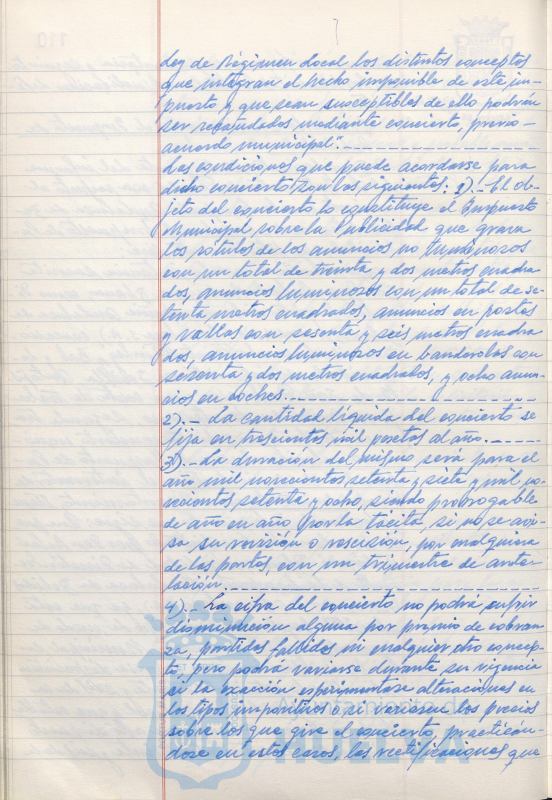 Ley de Régimen Local los distintos conceptos
que integran el hecho imponible de este im-
puesto y que sean susceptibles de ello podrán
ser recaudados mediante concierto, previo
acuerdo municipal".
Las condiciones que puede acordarse para
dicho concierto son las siguientes: 1).- El ob-
jeto del concierto lo constituye el Impuesto
Municipal sobre la Publicidad que grava
los rótulos de los anuncios no luminosos
con un total de treinta y dos metros cuadra-
dos, anuncios luminosos con un total de se-
tenta metros cuadrados, anuncios en postes
y vallas con sesenta y seis metros cuadra
dos, anuncios luminosos en banderolas con
sesenta y dos metros cuadrados, y ocho anun-
cios en coches.
2).- La cantidad líquida del concierto se
fija en trescientas mil pesetas al año.
3).- La duración del mismo será para el
año mil novecientos setenta y siete y mil no-
vecientos setenta y ocho, siendo prorrogable
de año en año por la tácita, si no se avi-
sa su revisión o rescisión, por cualquiera
de las partes, con un trimestre de ante-
lación.
4).- La cifra del concierto no podrá sufrir
disminución alguna por premio de cobran-
za, partidas fallidas ni cualquier otro concep-
to, pero podrá variarse durante su vigencia
si la exacción experimentase alteraciones en
los tipos impositivos o si variasen los precios
sobre los que gire el concierto, practicán-
dose en estos casos, las rectificaciones que